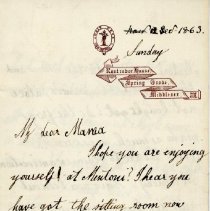 Dec 1863.
Sunday
Spring Grove,
Middlesex
My dear Mama
I hope you are enjoying
yourself! at Mentone? I hear you
have got the sitting room now